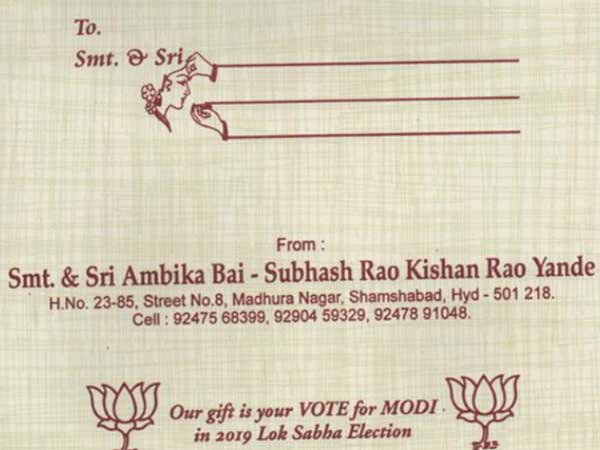 To.
Smt. & Sri
From :
Smt. & Sri Ambika Bai - Subhash Rao Kishan Rao Yande
H.No. 23-85, Street No.8, Madhura Nagar, Shamshabad, Hyd - 501 218.
Cell : 92475 68399, 92904 59329, 92478 91048.
Our gift is your VOTE for MODI
in 2019 Lok Sabha Election